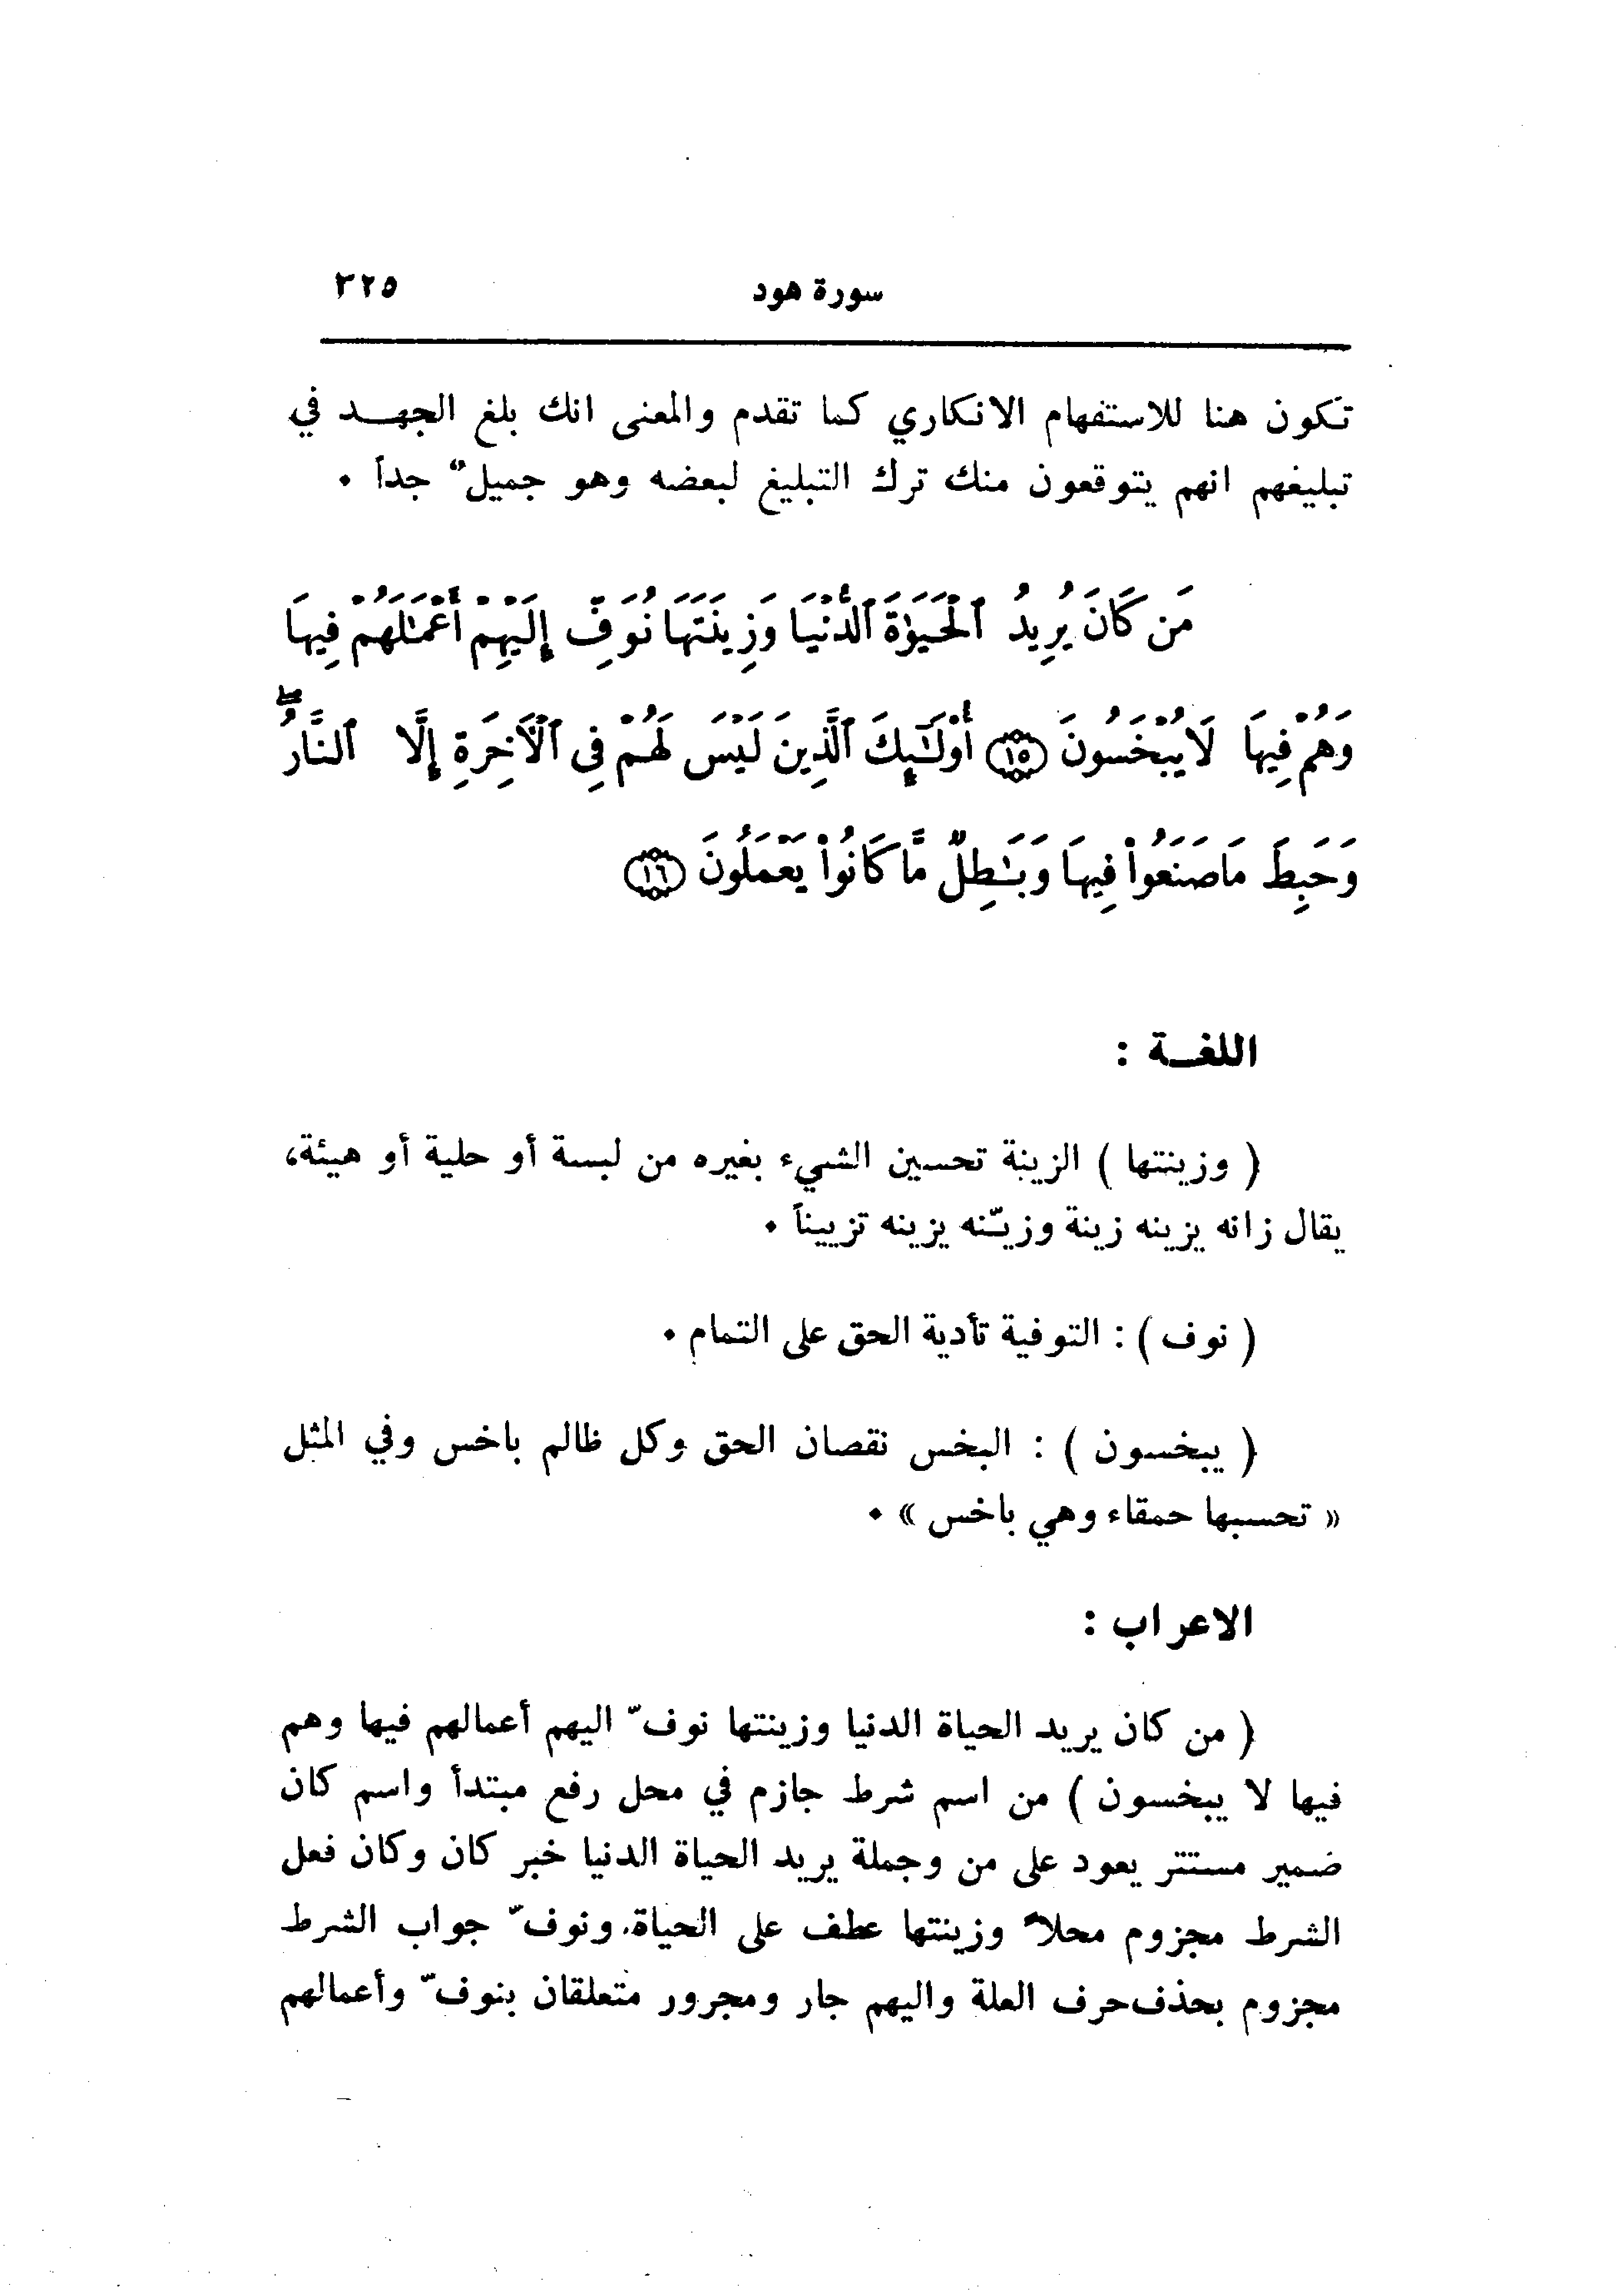 سورة هود ٣٢٥
تكون هنا للاستفهام الانكاري كما تقدم والمعنى انك بلغ الجهـــد في
تبليغهم انهم يتوقعون منك ترك التبليغ لبعضه وهو جميلٌ جداً ٠
مَن كَانَ يُرِيدُ ٱلْحَيَوٰةَ ٱلدُّنْيَا وَزِينَتَهَا نُوَفِّ إِلَيْهِمْ أَعْمَٰلَهُمْ فِيهَا
وَهُمْ فِيهَا لَا يُبْخَسُونَ ﴿١٥﴾ أُوْلَٰٓئِكَ ٱلَّذِينَ لَيْسَ لَهُمْ فِى ٱلْأٓخِرَةِ إِلَّا ٱلنَّارُۖ
وَحَبِطَ مَا صَنَعُواْ فِيهَا وَبَٰطِلٌ مَّا كَانُواْ يَعْمَلُونَ ﴿١٦﴾
اللغـة :
( وزينتها ) الزينة تحسين الشيء بغيره من لبسة أو حلية أو هيئة،
يقال زانه يزينه زينة وزيّنه يزينه تزييناً ٠
( نوف ) : التوفية تأدية الحق على التمام ٠
( يبخسون ) : البخس نقصان الحق وكل ظالم باخس وفي المثل
« تحسبها حمقاء وهي باخس » ٠
الاعراب :
( من كان يريد الحياة الدنيا وزينتها نوفّ اليهم أعمالهم فيها وهم
فيها لا يبخسون ) من اسم شرط جازم في محل رفع مبتدأ واسم كان
ضمير مستتر يعود على من وجملة يريد الحياة الدنيا خبر كان وكان فعل
الشرط مجزوم محلاً وزينتها عطف على الحياة. ونوفّ جواب الشرط
مجزوم بحذف حرف العلة واليهم جار ومجرور متعلقان بنوفّ وأعمالهم